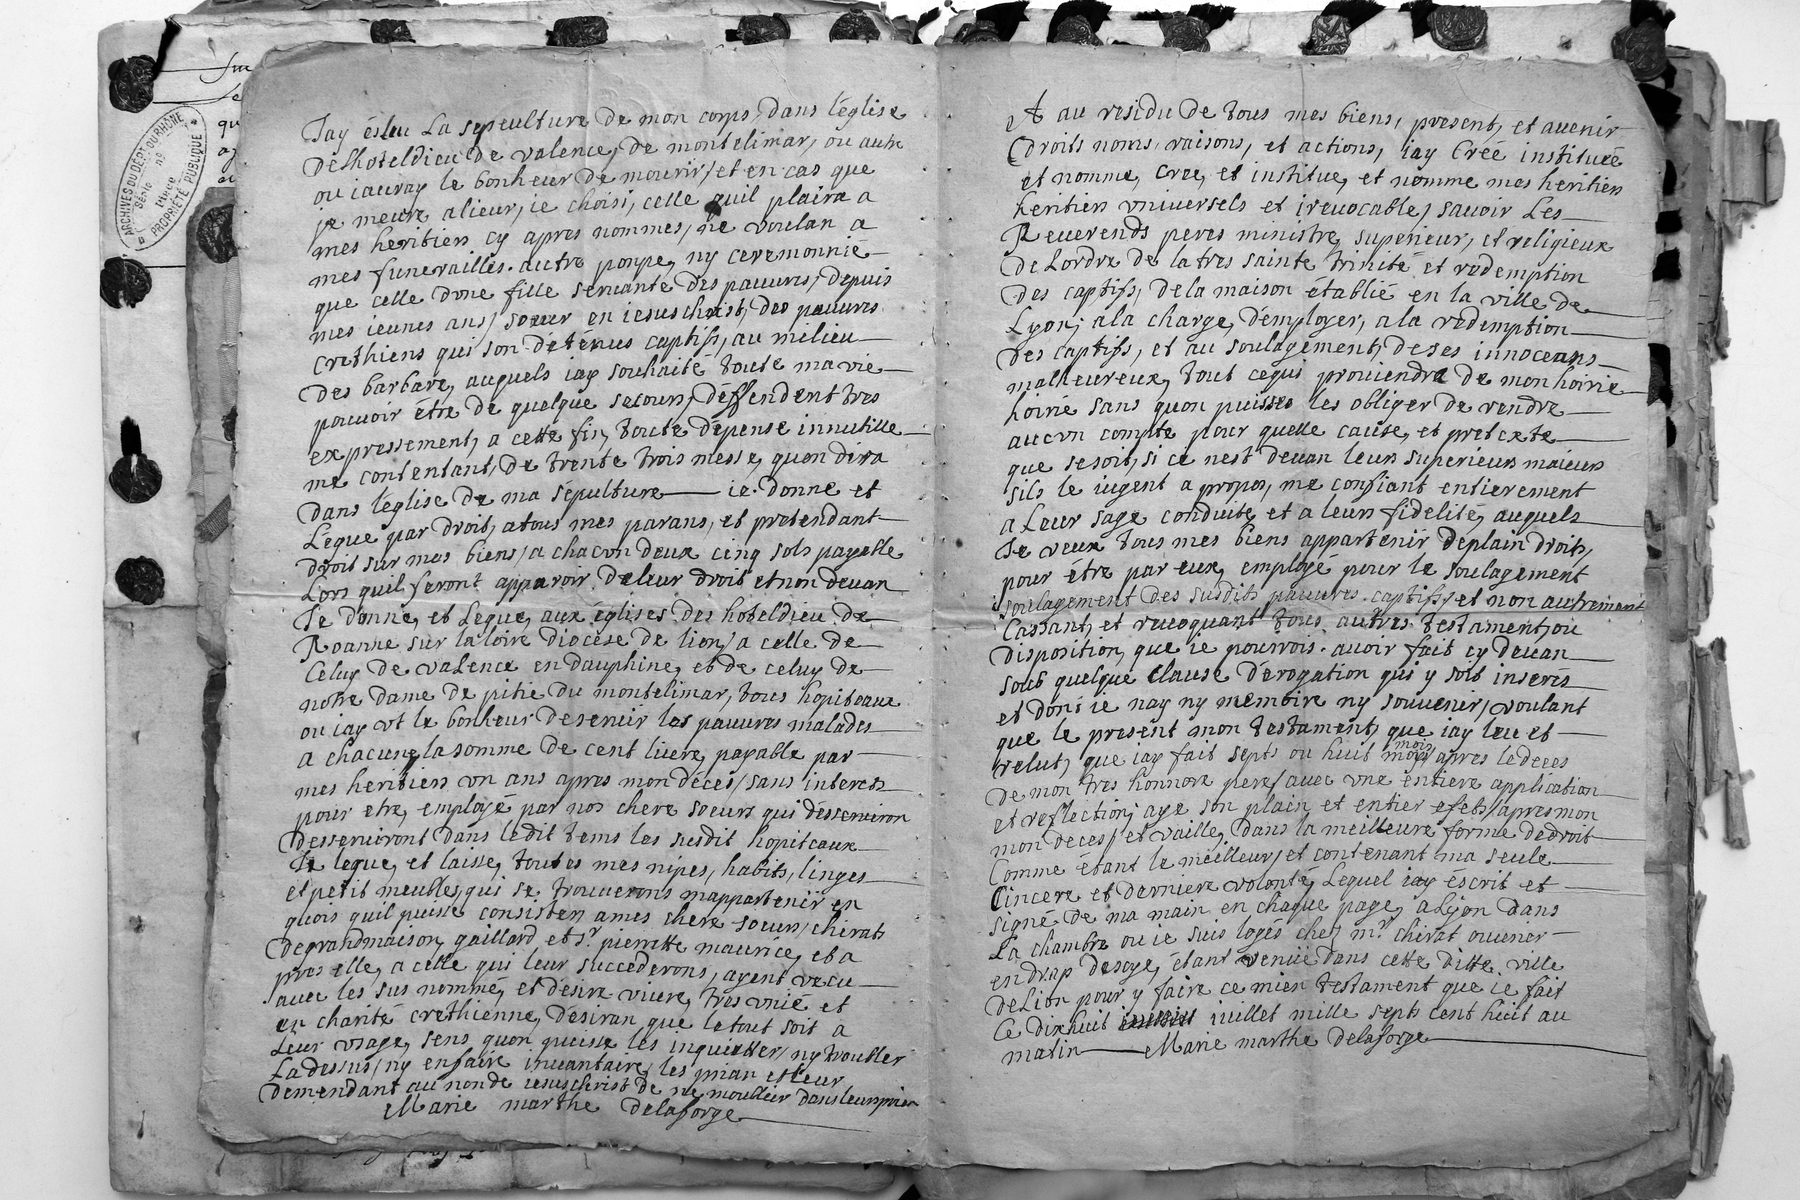 ARCHIVES DU DEPT DU RHÔNE
Série nº
Liasse
PROPRIÉTÉ PUBLIQUE
Jay éslu La sepeulture de mon corps, dans l'église
delhoteldieu de valence, de montelimar, ou autre
ou iauray le bonheur de mourir, et en cas que
je meure alieur, ie choisi, celle quil plaira a
mes heritiers cy apres nommes, ne voulan a
mes funerailles. autre pompe, ny ceremonnie
que celle dune fille servante des pauvres, depuis
mes ieunes ans, soeur en iesuschrist, des pauvres
crethiens qui son détenus captifs, au milieu
des barbare, auquels iay souhaité toute ma vie
pouvoir étre de quelque secours, déffendent tres
expressement, a cette fin, toute dépense innutille
me contentant, de trente trois messe, quon dira
dans l'église de ma sépulture ie donne et
Léque par droit, atous mes parans, et pretendant
droit sur mes biens, a chacun deux cinq sols payable
Lors quil seront apparoir de leur droit et non devan
Je donne, et Leque, aux églises des hoteldieu de
Roanne sur la loire diocese de lion, a celle de
Celuy de valence en dauphine, et de celuy de
notre dame de pitie du montelimar, tous hopiteaux
ou iay ut le bonheur deservir les pauvres malades
a chacune, la somme de cent livre, payable par
mes heritiers un ans apres mon déces, sans interets
pour etre, employé par nos chere soeurs qui desserviron
desserviront dans ledit tems les susdit hopiteaux
Je leque, et laisse, toutes mes nipes, habits, linges
et petit meubles, qui se trouverons mappartenir en
quois quil puisse consister, ames chere soeurs, chirats
degrandmaison, gaillard et sr. pierrette maurice, et a
pres elle, a celle qui leur succederons, ayent vecu
avec les sus nommé, et desire vivre, tres unié et
en charité crethienne, désiran que le tout soit a
Leur usage, sens quon puisse les inquietter, ny troubler
Ladessus, ny enfaire invantaire, les prian et leur
demendant au nonde iesuschrist de ne moublier dans leurs prier
Marie marthe delaforge
Et au residu de tous mes biens, present, et avenir
droits noms, raisons, et actions, iay Créé institueé
et nomme, Cree, et institue, et nomme mes heritiers
heritiers universels et irevocable, savoir Les
Reverends peres ministre, superieur, et religieux
de Lordre de la tres sainte trinité et redemption
des captifs, dela maison établié en la ville de
Lyon, ala charge, démployer, a la redemption
des captifs, et au soulagément, deses innoceans
malheureux, tout cequi proviendra de mon hoirié
hoirié sans quon puisse les obliger de rendre
aucun compte pour quelle cause, et pretexte
que sesoit, si ce nest devan leurs superieurs maieurs
sils le iugent a propos, me confiant entierement
a Leur sage conduite, et a leurs fidelité, auquels
Je veux tous mes biens appartenir deplain droits,
pour étre par eux, employé pour le soulagement
soulagement des susdits pauvres captifs, et non autrement
Cassant, et revoquant tous autres testament, ou
disposition, que ie pourrois avoir fait cy devan
sous quelque clause dérogation qui y soit inserés
et dont ie nay ny memoire ny souvenir, voulant
que le present mon testament, que iay leu et
relut, que iay fait septs ou huit mois apres le déces
mois
de mon tres honnore pere, avec une entiere application
et reflection, aye son plain et entier efets, apres mon
mon deces, et vaille, dans la meilleure forme dedroit
Comme étant le meilleur, et contenant ma seule
Cincere et derniere volonté, Lequel iay éscrit et
signé de ma main en chaque page, a Lyon dans
La chambre ou ie suis logés chez mr. chirat ouvrier
en drap desoye, étant venüe dans cette ditte ville
de Lion pour y faire ce mien testament que ie fait
Ce dixhuit iuillet mille septs cent huit au
matin Marie marthe delaforge